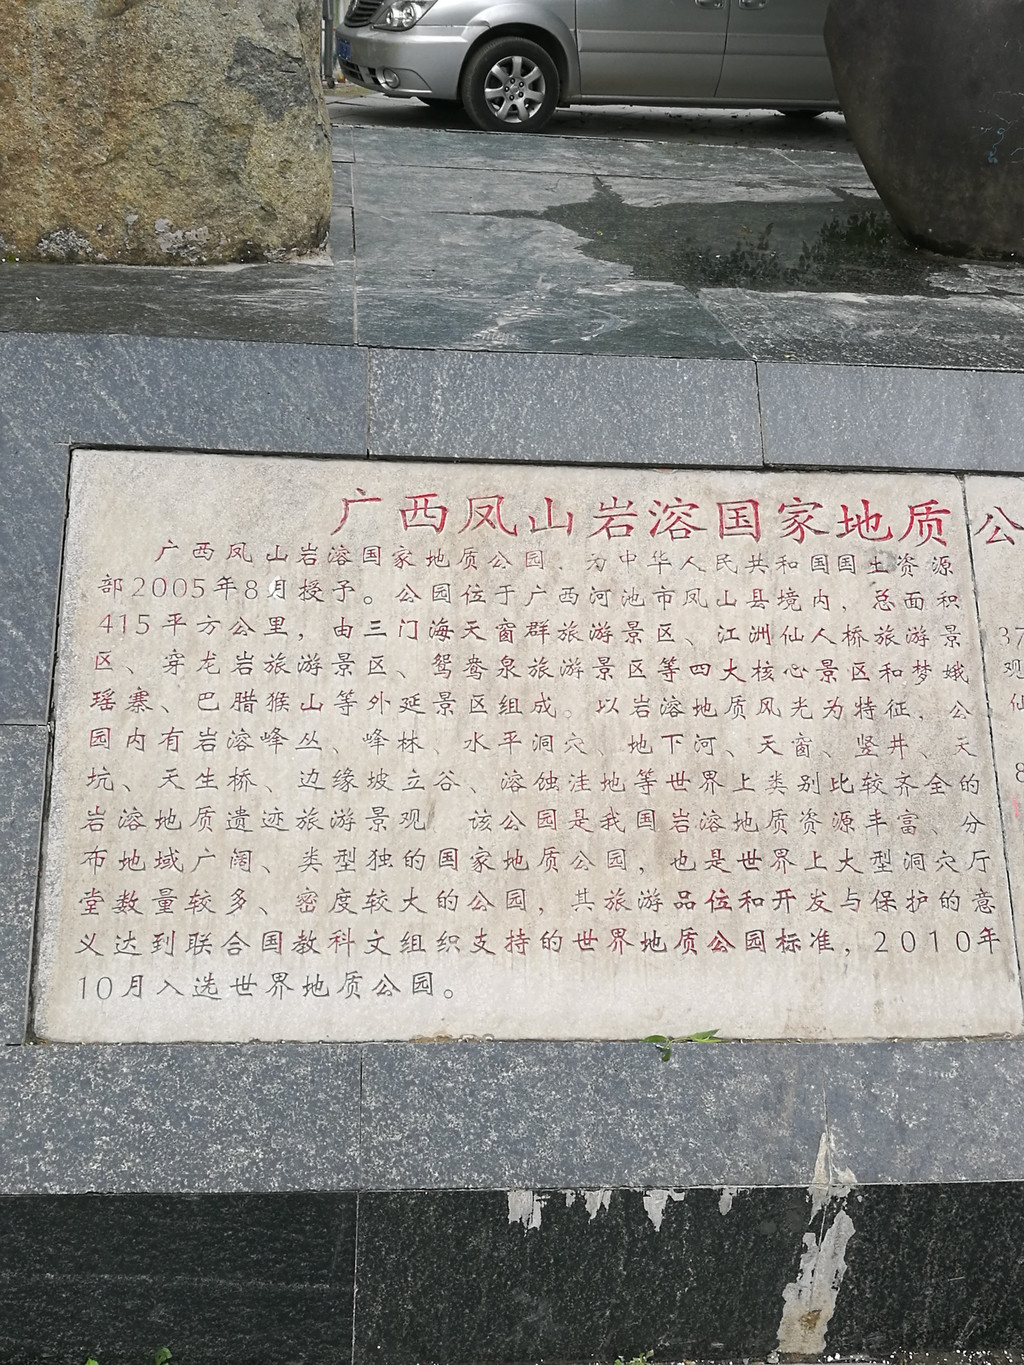 广西凤山岩溶国家地质公
广西凤山岩溶国家地质公园，为中华人民共和国国土资源
部2005年8月授予。公园位于广西河池市凤山县境内，总面积
415平方公里，由三门海天窗群旅游景区、江洲仙人桥旅游景
区、穿龙岩旅游景区、鸳鸯泉旅游景区等四大核心景区和梦娥
瑶寨、巴腊猴山等外延景区组成。以岩溶地质风光为特征，公
园内有岩溶峰丛、峰林、水平洞穴、地下河、天窗、竖井、天
坑、天生桥、边缘坡立谷、溶蚀洼地等世界上类别比较齐全的
岩溶地质遗迹旅游景观 该公园是我国岩溶地质资源丰富、分
布地域广阔、类型独的国家地质公园，也是世界上大型洞穴厅
堂数量较多、密度较大的公园，其旅游品位和开发与保护的意
义达到联合国教科文组织支持的世界地质公园标准，2010年
10月入选世界地质公园。
37
观
仙
8